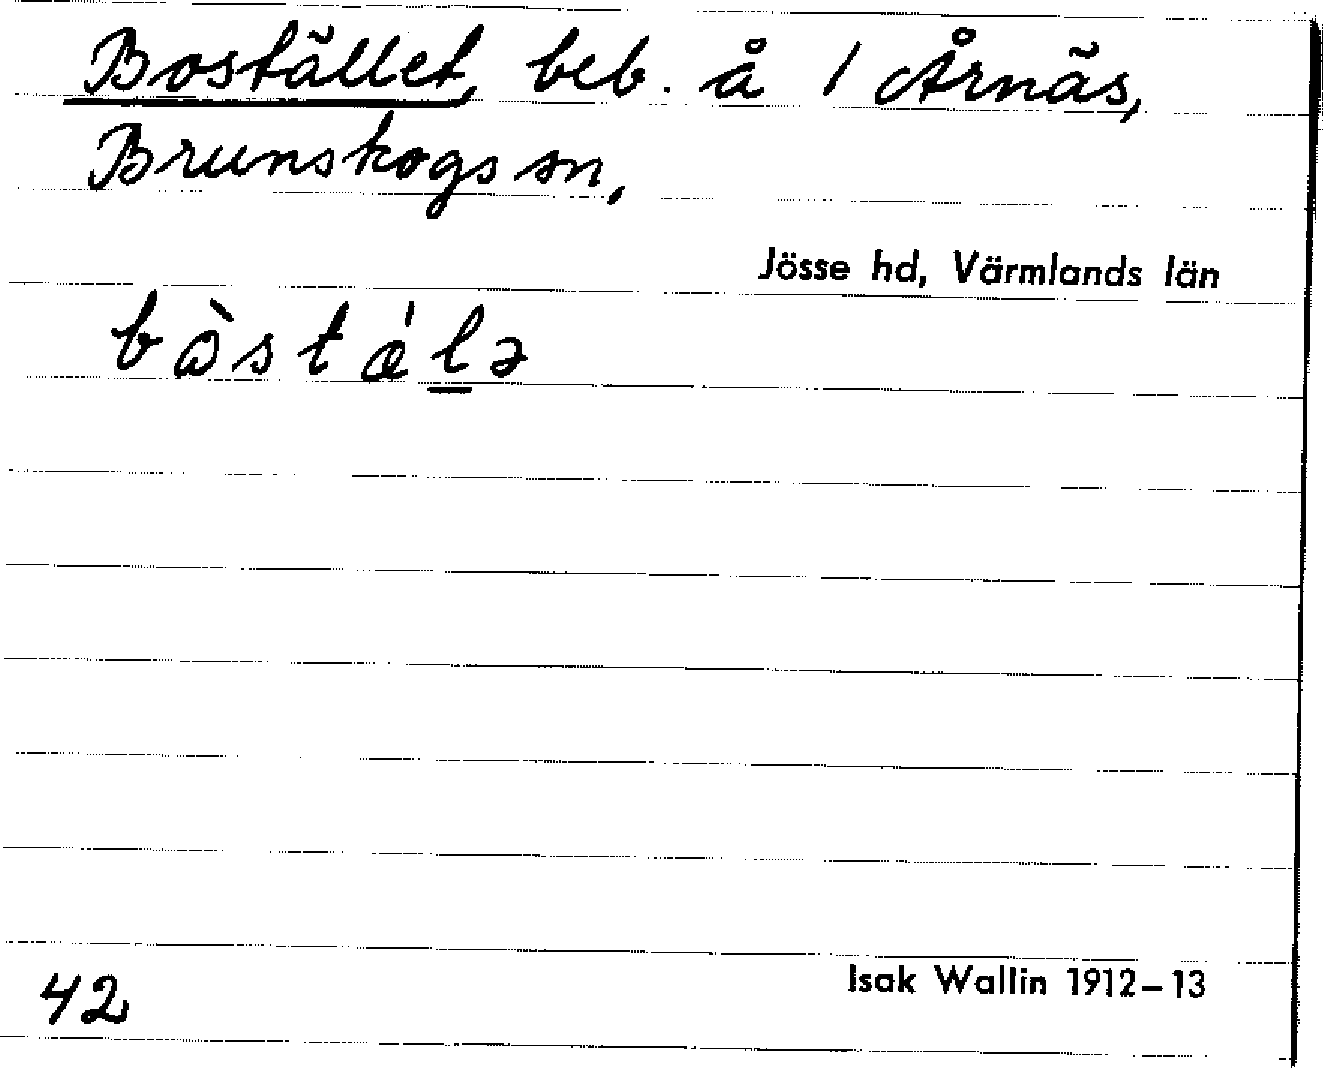 Bostället, beb. å 1 Årnäs,
Brunskogs sn,
Jösse hd, Värmlands län
bòstǽl̲ə
42
Isak Wallin 1912–13